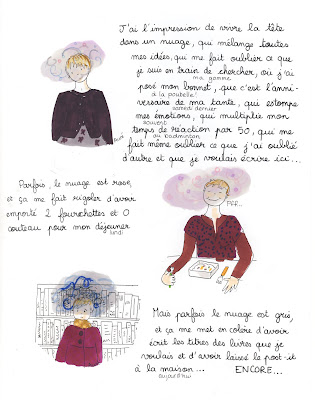 J'ai l'impression de vivre la tête
dans un nuage, qui mélange toutes
mes idées, qui me fait oublier ce que
je suis en train de chercher, où j'ai
ma gomme
posé mon bonnet, que c'est l'anni-
à la poubelle!
versaire de ma tante, qui estompe
samedi dernier
mes émotions, qui multiplie mon
souvent
temps de réaction par 50, qui me
au badminton
fait même oublier ce que j'ai oublié
d'autre et que je voulais écrire ici...
Parfois, le nuage est rose,
et ça me fait rigoler d'avoir
emporté 2 fourchettes et 0
couteau pour mon déjeuner.
lundi
PFF...
Mais parfois le nuage est gris,
et ça me met en colère d'avoir
écrit les titres des livres que je
voulais et d'avoir laissé le post-it
à la maison... ENCORE...
aujourd'hui